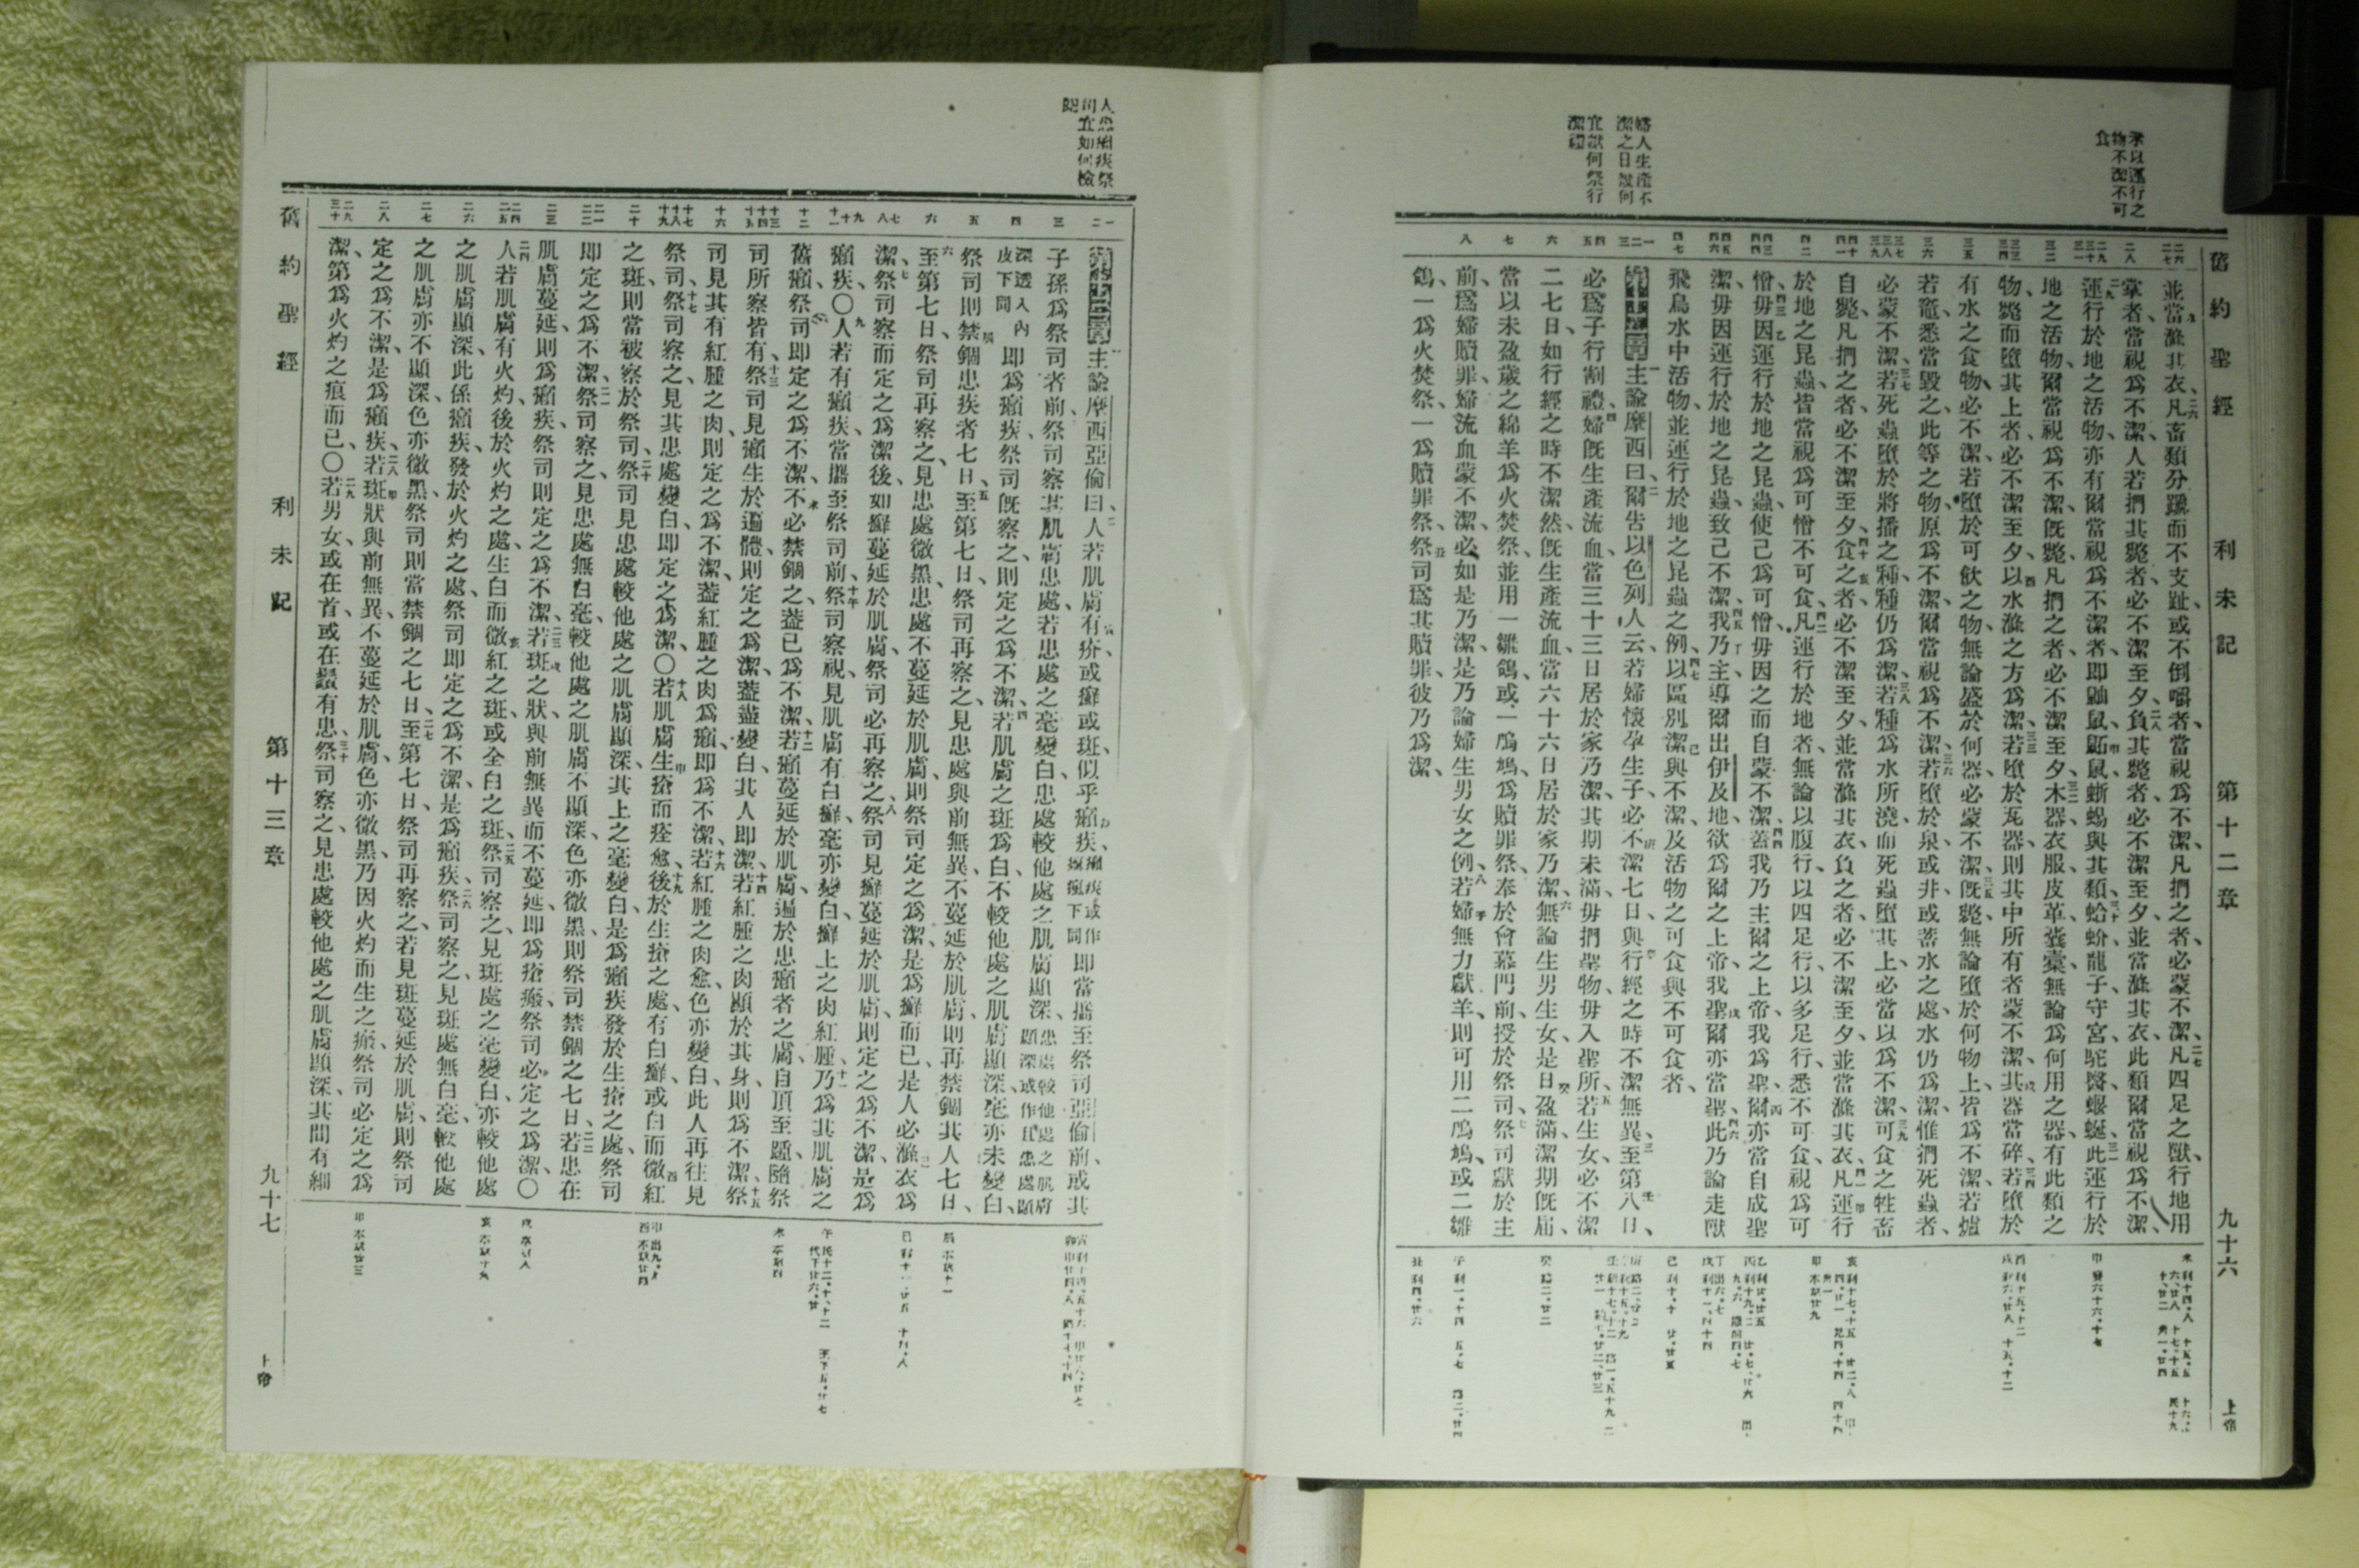 舊約聖經 利未記 第十二章 九十六 上帝
並當滌其衣、凡畜類分蹏而不支趾、或不倒嚼者、當視爲不潔、凡捫之者、必蒙不潔、凡四足之獸、行地用
掌者、當視爲不潔、人若捫其斃者、必不潔至夕、負其斃者、必不潔至夕、並當滌其衣、此類爾當視爲不潔、
運行於地之活物、亦有爾當視爲不潔者、即鼬鼠、鼫鼠、蜥蜴與其類、蛤蚧、龍子、守宮、駝醫、蝘蜓、此運行於
地之活物、爾當視爲不潔、旣斃、凡捫之者、必不潔至夕、木器衣服皮革囊橐、無論爲何用之器、有此類之
物斃而墮其上者、必不潔至夕、以水滌之方爲潔、若墮於瓦器、則其中所有者蒙不潔、其器當碎、若墮於
有水之食物、必不潔、若墮於可飲之物、無論盛於何器、必蒙不潔、旣斃、無論墮於何物上、皆爲不潔、若爐
若竈、悉當毀之、此等之物、原爲不潔、爾當視爲不潔、若墮於泉、或井、或蓄水之處、水仍爲潔、惟捫死蟲者、
必蒙不潔、若死蟲墮於將播之種、種仍爲潔、若種爲水所澆、而死蟲墮其上、必當以爲不潔、可食之牲畜
自斃、凡捫之者、必不潔至夕、食之者、必不潔至夕、並當滌其衣、負之者、必不潔至夕、並當滌其衣、凡運行
於地之昆蟲、皆當視爲可憎、不可食、凡運行於地者、無論以腹行、以四足行、以多足行、悉不可食、視爲可
憎、毋因運行於地之昆蟲、使己爲可憎、毋因之而自蒙不潔、蓋我乃主爾之上帝、我爲聖、爾亦當自成聖
潔、毋因運行於地之昆蟲、致己不潔、我乃主、導爾出伊及地、欲爲爾之上帝、我聖爾亦當聖、此乃論走獸
飛鳥水中活物、並運行於地之昆蟲之例、以區別潔與不潔、及活物之可食與不可食者、
第十二章 主諭摩西曰、爾告以色列人云、若婦懷孕生子、必不潔七日、與行經之時不潔無異、至第八日、
必爲子行割禮、婦旣生產流血、當三十三日居於家乃潔、其期未滿、毋捫聖物、毋入聖所、若生女、必不潔
二七日、如行經之時不潔然、旣生產流血、當六十六日居於家乃潔、無論生男生女、是日盈滿、潔期旣屆、
當以未盈歲之綿羊爲火焚祭、並用一雛鴿、或一鳲鳩、爲贖罪祭、奉於會幕門前、授於祭司、祭司獻於主
前、爲婦贖罪、婦流血蒙不潔、必如是乃潔、是乃論婦生男女之例、若婦無力獻羊、則可用二鳲鳩、或二雛
鴿、一爲火焚祭、一爲贖罪祭、祭司爲其贖罪、彼乃爲潔、
婦人生產不
潔之日幾何
宜獻何祭行
潔禮
人患癩疾祭
司宜如何檢
閱
第十三章 主諭摩西亞倫曰、人若肌膚有疥、或癬或斑、似乎癩疾、癩疾或作癩瘋下同即當攜至祭司亞倫前、或其
子孫爲祭司者前、祭司察其肌膚患處、若患處之毫變白、患處較他處之肌膚顯深、患處較他處之肌膚顯深或作且患處顯
深透入內皮下同即爲癩疾、祭司旣察之、則定之爲不潔、若肌膚之斑爲白、不較他處之肌膚顯深、毫亦未變白、
祭司則禁錮患疾者七日、至第七日、祭司再察之、見患處與前無異、不蔓延於肌膚、則再禁錮其人七日、
至第七日、祭司再察之、見患處微黑、患處不蔓延於肌膚、則祭司定之爲潔、是爲癬而已、是人必滌衣爲
潔、祭司察而定之爲潔後、如癬蔓延於肌膚、祭司必再察之、祭司見癬蔓延於肌膚、則定之爲不潔、是爲
癩疾、〇人若有癩疾、當攜至祭司前、祭司察視、見肌膚有白癬、毫亦變白、癬上之肉紅腫、乃爲其肌膚之
舊癩、祭司即定之爲不潔、不必禁錮之、蓋已爲不潔、若癩蔓延於肌膚、遍於患癩者之膚、自頂至踵、隨祭
司所察皆有、祭司見癩生於遍體、則定之爲潔、蓋盡變白、其人即潔、若紅腫之肉顯於其身、則爲不潔、祭
司見其有紅腫之肉、則定之爲不潔、蓋紅腫之肉爲癩、即爲不潔、若紅腫之肉愈、色亦變白、此人再往見
祭司、祭司察之、見其患處變白、即定之爲潔、〇若肌膚生瘡而痊愈、後於生瘡之處、有白癬、或白而微紅
之斑、則當被察於祭司、祭司見患處較他處之肌膚顯深、其上之毫變白、是爲癩疾發於生瘡之處、祭司
即定之爲不潔、祭司察之、見患處無白毫、較他處之肌膚不顯深、色亦微黑、則祭司禁錮之七日、若患在
肌膚蔓延、則爲癩疾、祭司則定之爲不潔、若斑之狀與前無異而不蔓延、即爲瘡瘢、祭司必定之爲潔、〇
人若肌膚有火灼、後於火灼之處、生白而微紅之斑、或全白之斑、祭司察之、見斑處之毫變白、亦較他處
之肌膚顯深、此係癩疾、發於火灼之處、祭司即定之爲不潔、是爲癩疾、祭司察之、見斑處無白毫、較他處
之肌膚亦不顯深、色亦微黑、祭司則當禁錮之七日、至第七日、祭司再察之、若見斑蔓延於肌膚、則祭司
定之爲不潔、是爲癩疾、若斑狀與前無異、不蔓延於肌膚、色亦微黑、乃因火灼而生之瘢、祭司必定之爲
潔、第爲火灼之痕而已、〇若男女、或在首、或在鬚有患、祭司察之、見患處較他處之肌膚顯深、其間有細
舊約聖經 利未記 第十三章 九十七 上帝